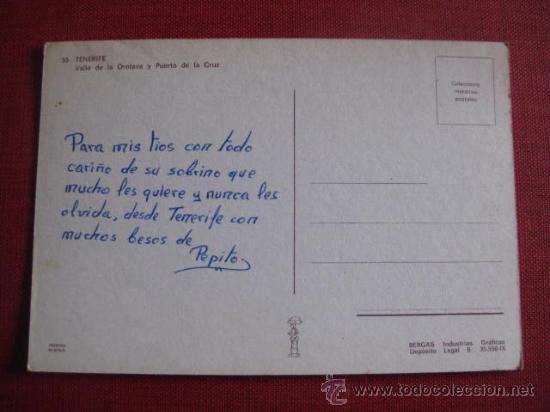 30 TENERIFE
Valle de la Orotava y Puerto de la Cruz
Colecciones
nuestras
postales
Para mis tios con todo
cariño de su sobrino que
mucho les quiere y nunca les
olvida, desde Tenerife con
muchos besos de
Pepito
BERGAS Industrias Gráficas
Depósito Legal B. 35.556-IX
© www.todocoleccion.net